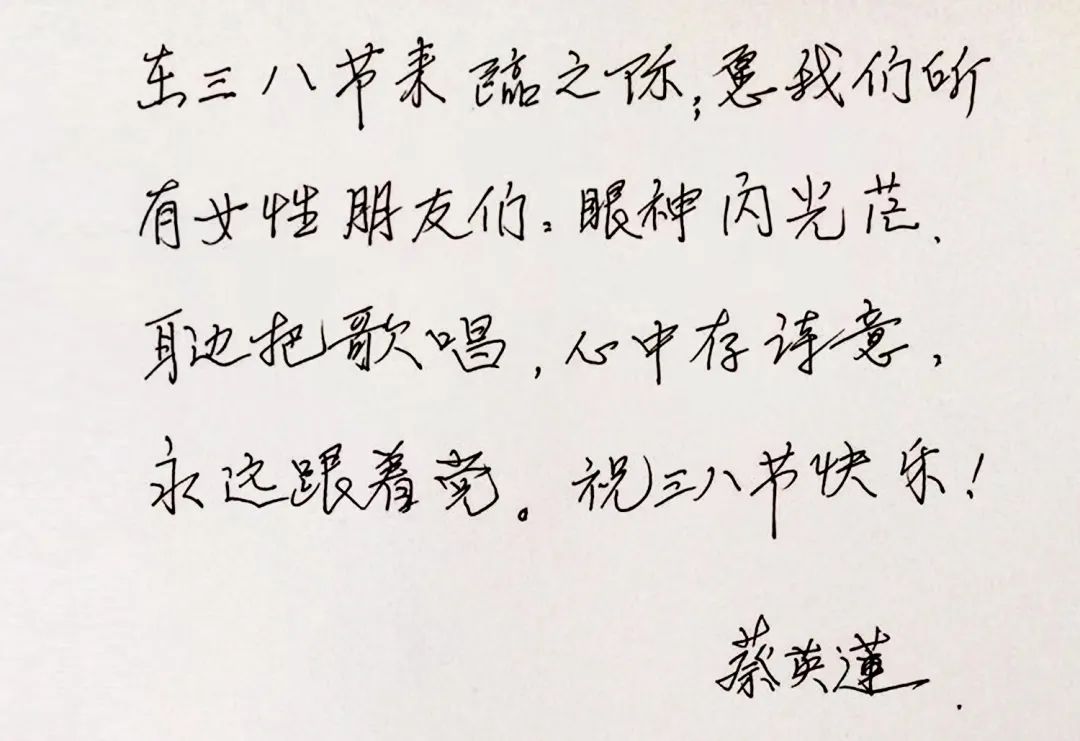 在三八节来临之际,愿我们所
有女性朋友们:眼神闪光芒、
耳边把歌唱,心中存诗意,
永远跟着党。祝三八节快乐!
蔡英莲